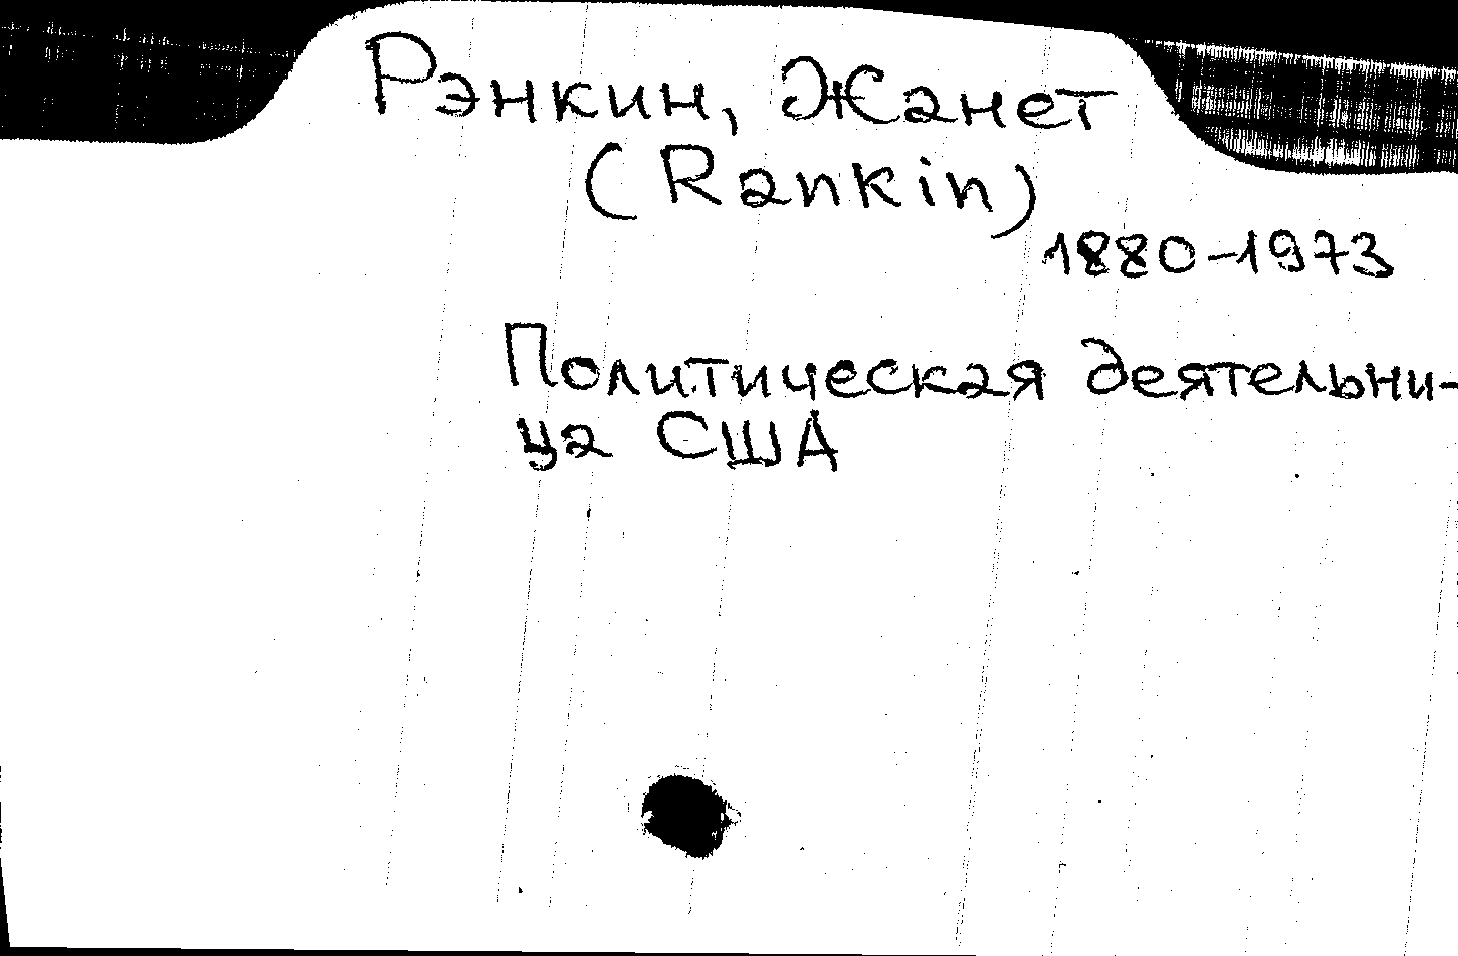 Рэнкин, Жанет
(Rankin)
1880-1973
Политическая деятельни-
ца США